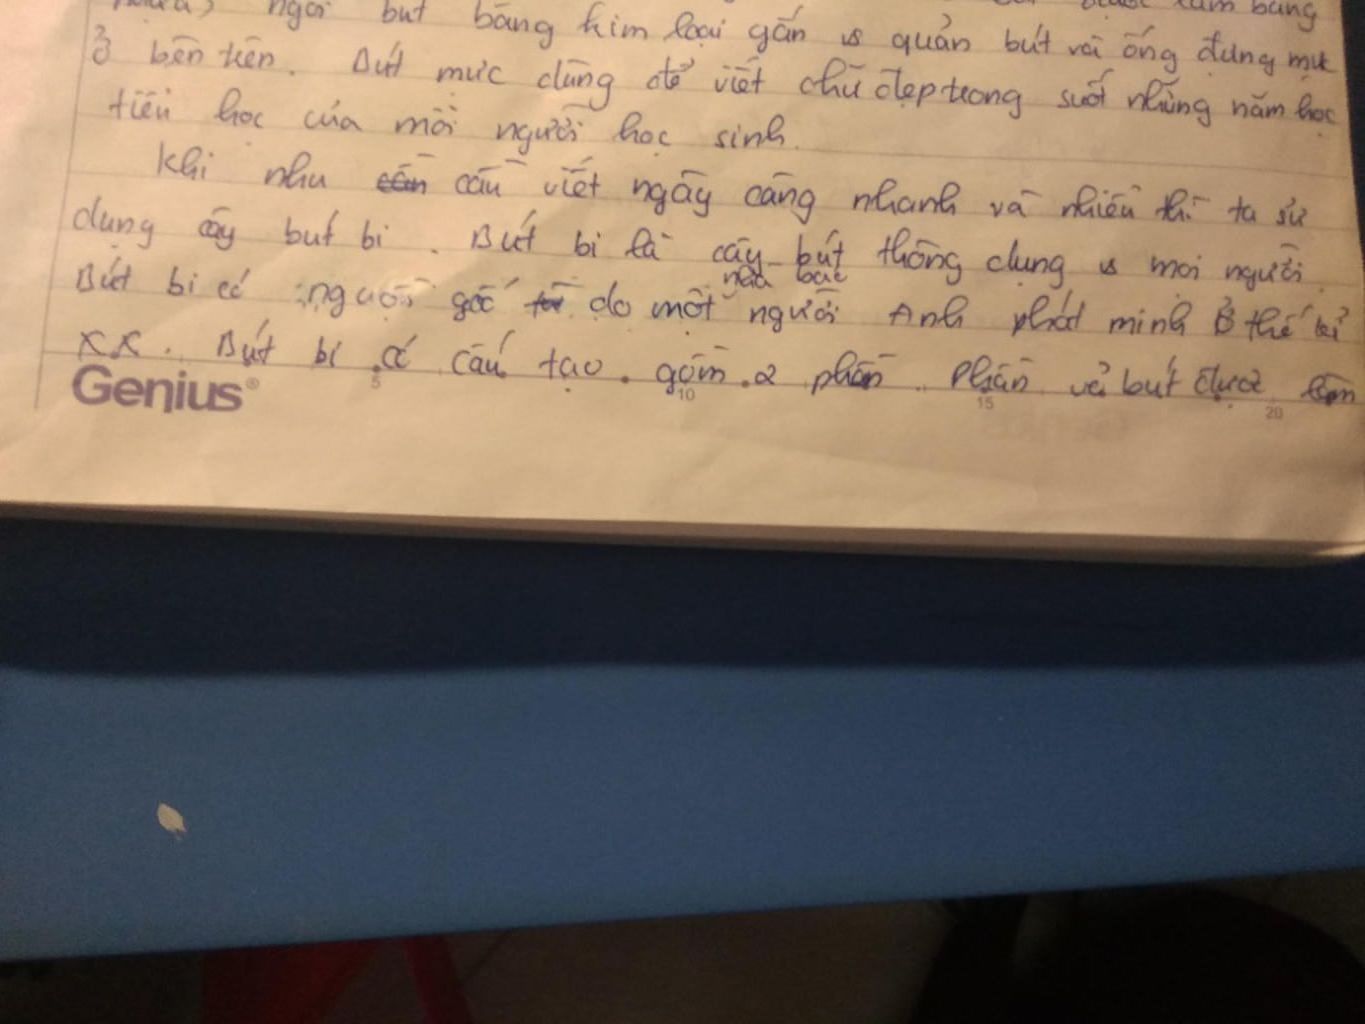 ngòi bút bằng kim loại gắn vs quản bút và ống đựng mực
ở bên trên. Bút mực dùng để viết chữ đẹp trong suốt những năm học
tiểu học của mỗi người học sinh.
Khi nhu cầu viết ngày càng nhanh và nhiều thì ta sử
dụng cây bút bi. Bút bi là cây bút thông dụng vs mọi người.
nhà báo
Bút bi có nguồn gốc do một người Anh phát minh ở thế kỉ
XX. Bút bi có cấu tạo gồm 2 phần. Phần vỏ bút được làm
Genius®
5 10 15 20